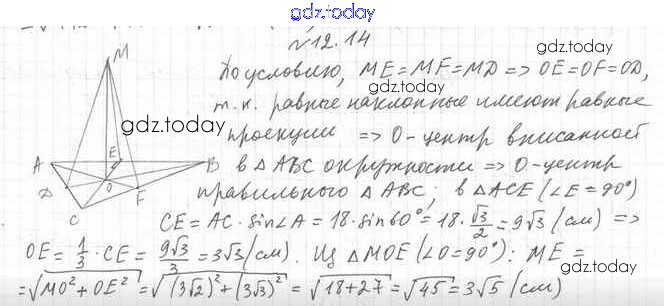 gdz.today
№12.14
gdz.today
По условию, ME = MF = MD => OE = OF = OD,
т.к. равные наклонные имеют равные
gdz.today
проекции => O - центр вписанной
в △ABC окружности => O - центр
правильного △ABC; в △ACE (∠E = 90°)
CE = AC · sin∠A = 18 · sin60° = 18 · √3/2 = 9√3 (см) =>
OE = 1/3 · CE = 9√3/3 = 3√3 (см). Из △MOE (∠O = 90°): ME =
= √MO² + OE² = √(3√2)² + (3√3)² = √18+27 = √45 = 3√5 (см)
gdz.today
M
A
E
B
D
O
F
C